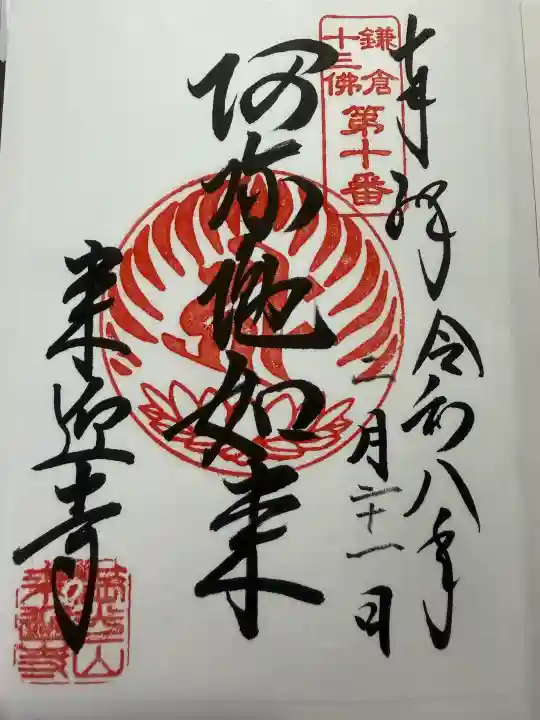 奉拝
令和八年
二月二十一日
鎌倉
十三佛
第十番
阿弥陀如来
来迎寺